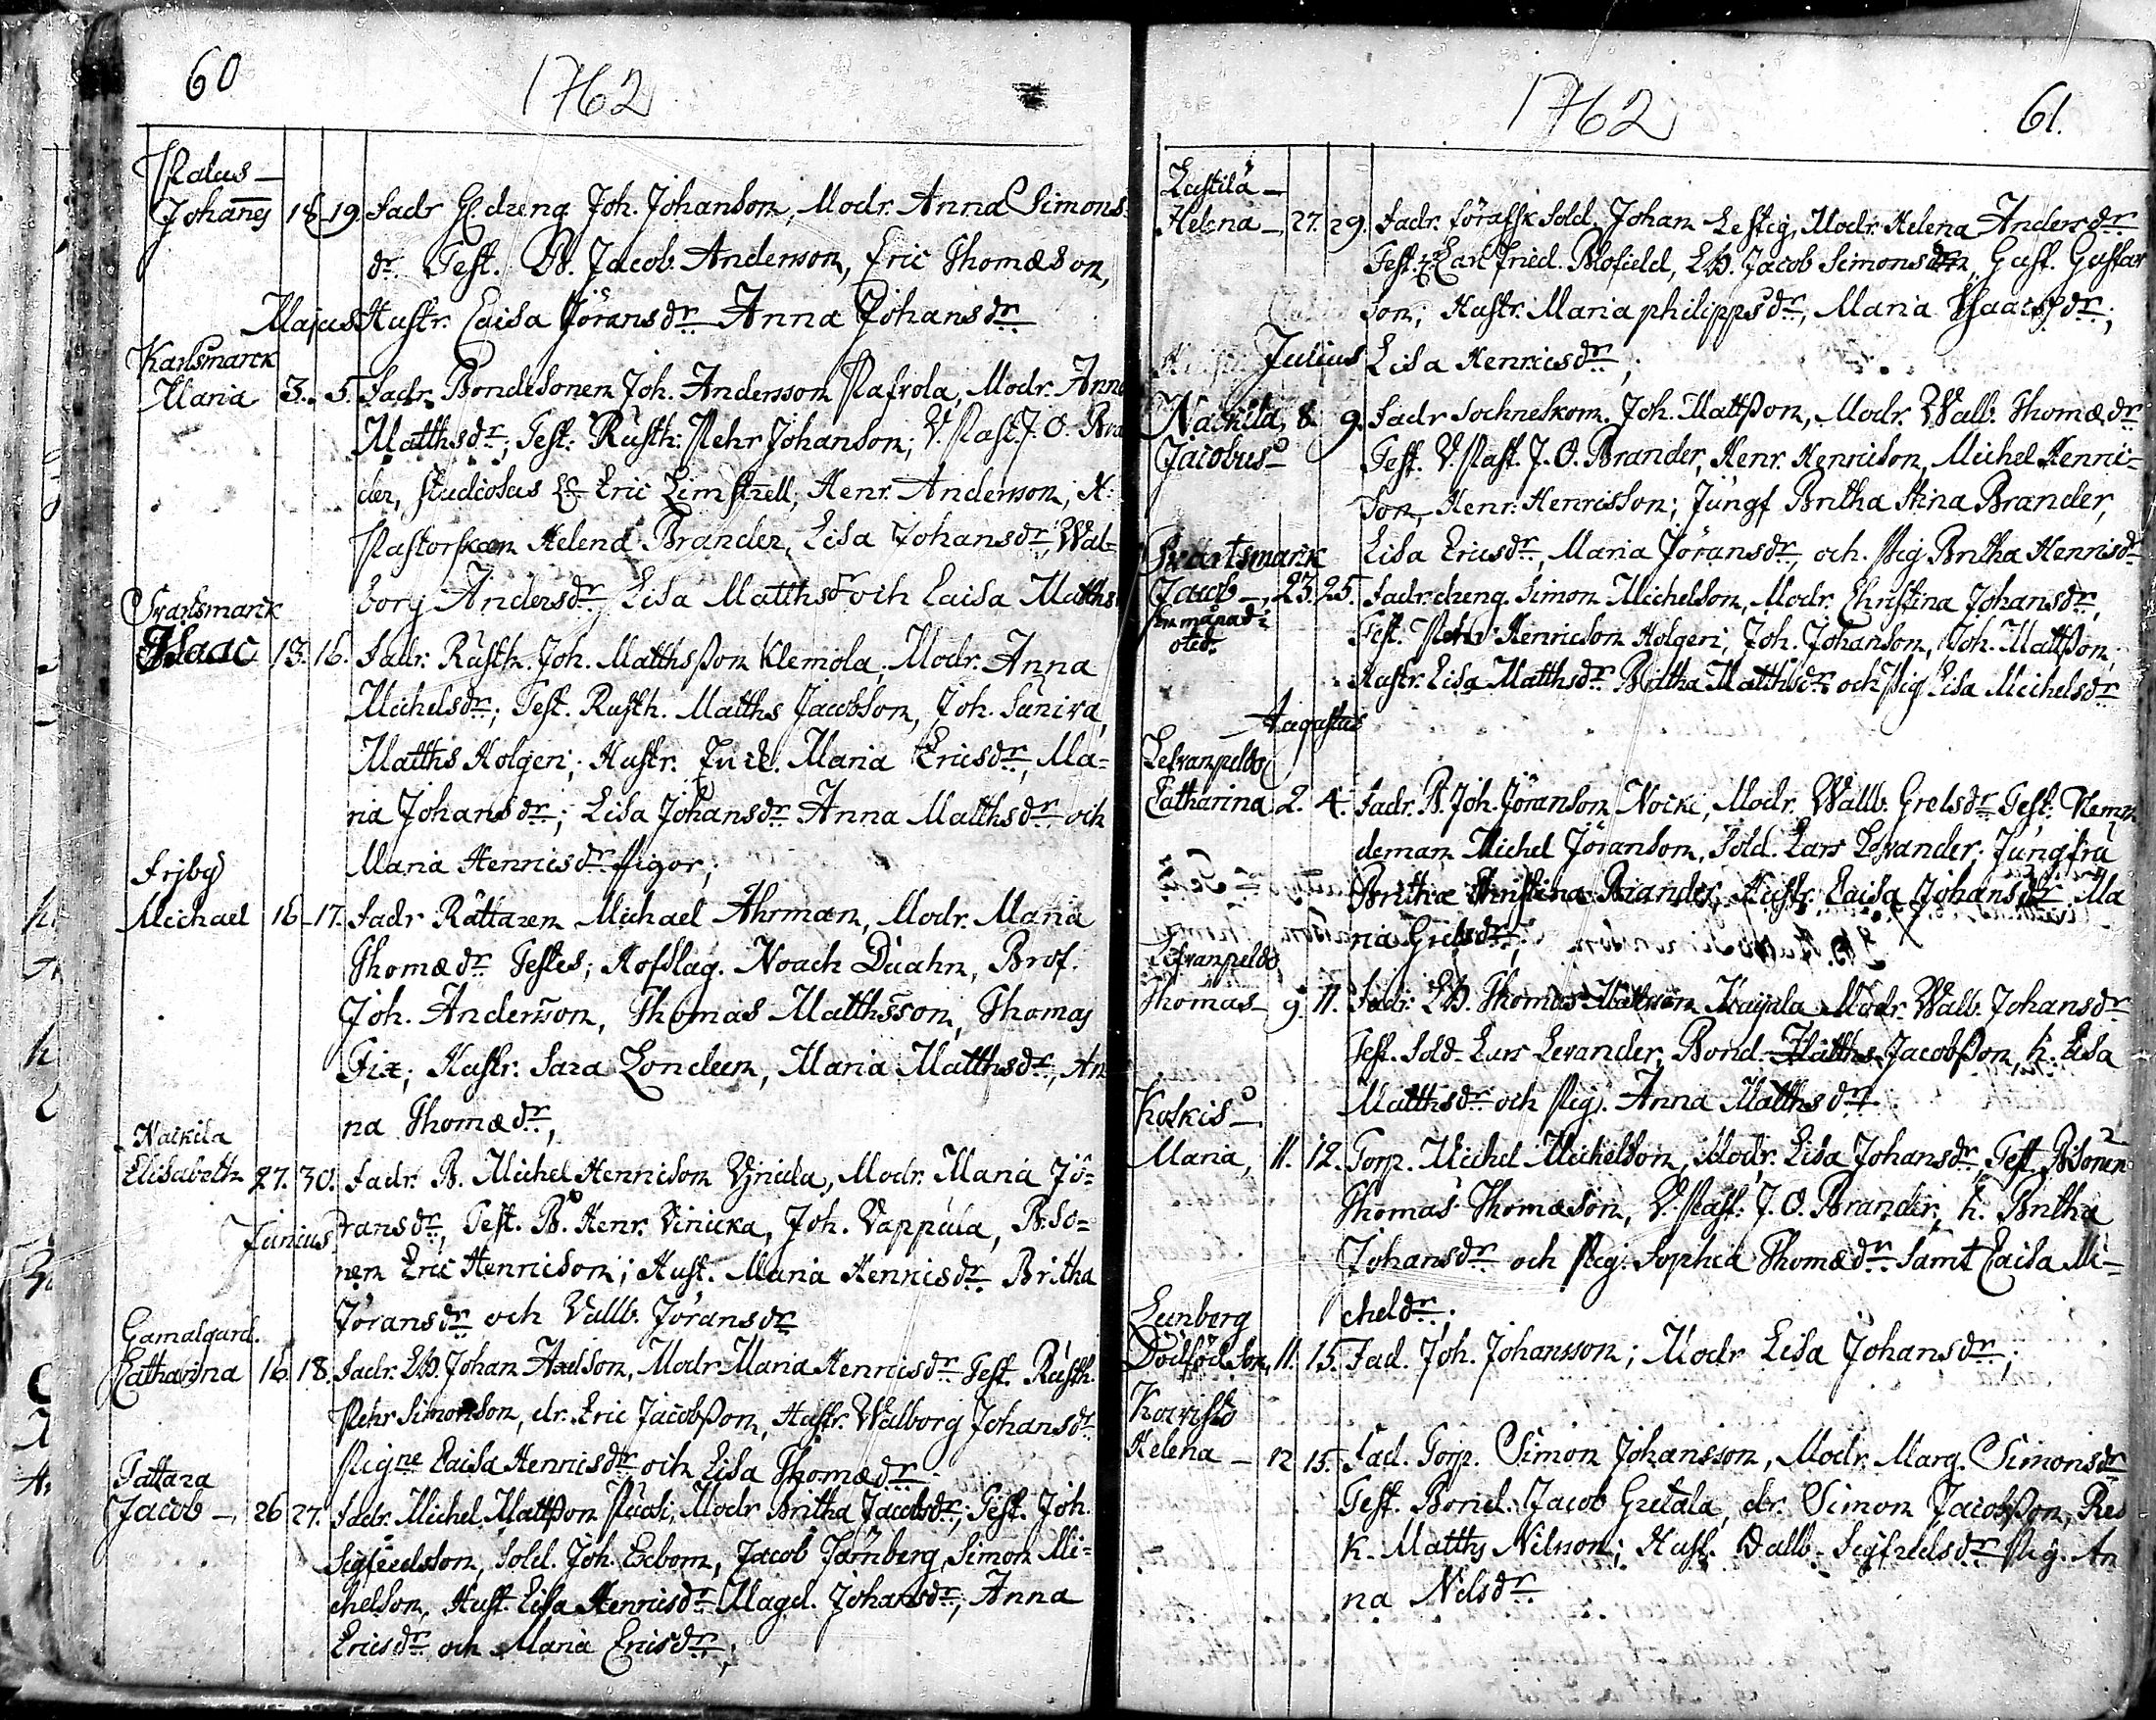 60
1762
Palus-
Johanes 18 19. Fadr Gl. dreng Joh. Johanson, Modr. Anna Simons
dr. Test. B. Jacob Anderson, Eric Thomæson,
Majus Hustr. Caisa Jöransdr Anna Johansdr
Karlsmarck
Maria 3. 5. Fadr. Bondesonen Joh. Andersson Pafvola, Modr. Anna
Matthsdr; Test. Rusth. Pehr Johanson; V. Past. J. O. Bran
der, studiosus Eric Limnell, Henr. Anderson, H.
Pastorskan Helena Brander, Lisa Johansdr, Wal-
borg Andersdr Lisa Matthsdr och Caisa Matths
Svartsmarck
Isaac 13. 16. Fadr. Rusth. Joh. Matthsson Klemola, Modr. Anna
Michelsdr; Test. Rusth. Matths Jacobson, Joh. Sunira,
Matths Holgeri; Hustr. Maria Ericsdr, Ma-
ria Johansdr; Lisa Johansdr Anna Matthsdr och
Maria Henricsdr Pigor;
Frjby
Michael 16 17. Fadr Rättaren Michael Ahrman, Modr. Maria
Thomædr Testes; Hofslag. Noach Duahn, Brof.
Joh. Andersson, Thomas Matthsson, Thomas
Fix; Hustr. Sara Londeen, Maria Matthsdr, An
na Thomædr,
Nackila
Elisabeth 27. 30. Fadr. B. Michel Henricson Vinicka, Modr. Maria Jö-
Junius ransdr, Test. B. Henr. Vinicka, Joh. Vappula, B. So-
nen Eric Henricson; Hust. Maria Henricsdr Britha
Jöransdr och Vallb. Jöransdr
Gamalgard.
Catharina 16 18. Fadr. LB. Johan Axelson, Modr Maria Henricsdr Test. Rusth.
Pehr Simonson, dr. Eric Jacobsson, Hustr. Walborg Johansdr
Pigne Caisa Henricsdr och Lisa Thomædr
Tattara
Jacob -, 26 27. Fadr. Michel Mattsson Pucki, Modr Britha Jacobsdr; Test. Joh.
Sigfredsson, Sold. Joh. Exbom, Jacob Törnberg, Simon Mi-
chelson, Hust. Lisa Henricsdr Magd. Johansdr, Anna
Ericsdr och Maria Ericsdr;
1762
61.
Lastila -
Helena -, 27. 29. Fadr. förafsk Sold. Johan Lestig, Modr. Helena Andersdr
Test. Carl Fried. Blofield, LB. Jacob Simonson, Gust. Gustaf
son; Hustr. Maria philippsdr, Maria Isaacsdr;
Julius Lisa Henricsdr;
Nackila, 8. 9. Fadr Sochneskom. Joh. Mattsson, Modr. Wallb. Thomædr
Jacobus- Test. V. Past. J. O. Brander, Henr. Henricson, Michel Henric-
son, Henr. Henricsson; Jungf Britha Stina Brander,
Svartsmarck Lisa Ericsdr, Maria Jöransdr, och Pig Britha Henricsdr
Jacob -, 23. 25. Fadr. dreng Simon Michelson, Modr. Christina Johansdr,
Test. Pehr Henricson Holgeri, Joh. Johanson, Joh. Mattsson;
Hustr. Lisa Matthsdr Britha Matthsdr och Pig Lisa Michelsdr
Augustus
Lefvanpeldo
Catharina 2. 4. Fadr. B. Joh. Jöranson Nocki, Modr. Wallb. Grelsdr Test. Nemn
deman Michel Jöranson, Sold. Lars Levander; Jungfru
Britha Christina Brander, Hustr. Caisa Johansdr Ma
ria Grelsdr;
Lefvanpeldo
Thomas- 9 11. Fadr. LB. Thomas Mattsson Modr. Wallb. Johansdr
Test. Sold. Lars Levander, Bond. Matths Jacobsson, h. Lisa
Matthsdr och Pig. Anna Matthsdr
Koskis-
Maria, 11. 12. Torp. Michel Michelson, Modr. Lisa Johansdr, Test. Bsonen
Thomas Thomæson, V. Past. J. O. Brander, h. Britha
Johansdr och Pig. Sophia Thomædr samt Caisa Mi-
cheldr;
Lunberg
Dödföd Son, 11. 15. Fad. Joh. Johansson; Modr Lisa Johansdr;
Koivisto
Helena - 12 15. Fad. Torp. Simon Johansson, Modr. Marg. Simonsdr
Test. Bond. Jacob Gretala, dr. Simon Jacobsson, Res
k. Matths Nilsson; Hust. Vallb. Sigfredsdr Pig. An
na Nilsdr